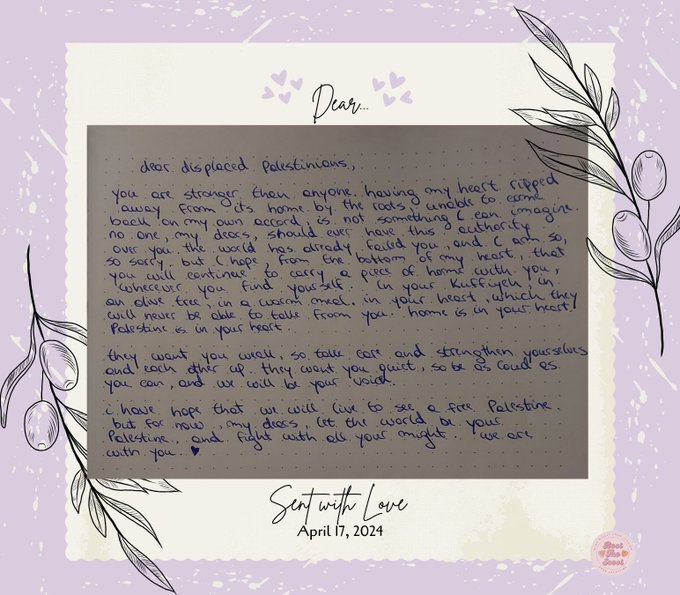 Dear...
dear displaced Palestinians,
you are stronger than anyone. having my heart ripped
away from it's home by the roots, unable to come
back on my own accord, is not something i can imagine.
no one, my dears, should ever have this authority
over you. the world has already failed you, and i am so,
so sorry. but i hope, from the bottom of my heart, that
you will continue to carry a piece of home with you,
wherever you find yourself. in your Kuffiyeh, in
an olive tree, in a warm meal. in your heart, which they
will never be able to take from you. home is in your heart!
Palestine is in your heart.
they want you weak, so take care and strengthen yourselves
and each other up. they want you quiet, so be as loud as
you can, and we will be your voice.
i have hope that we will live to see a free Palestine.
but for now, my dears, let the world be your
Palestine, and fight with all your might. we are
with you. ♥
Sent with Love
April 17, 2024